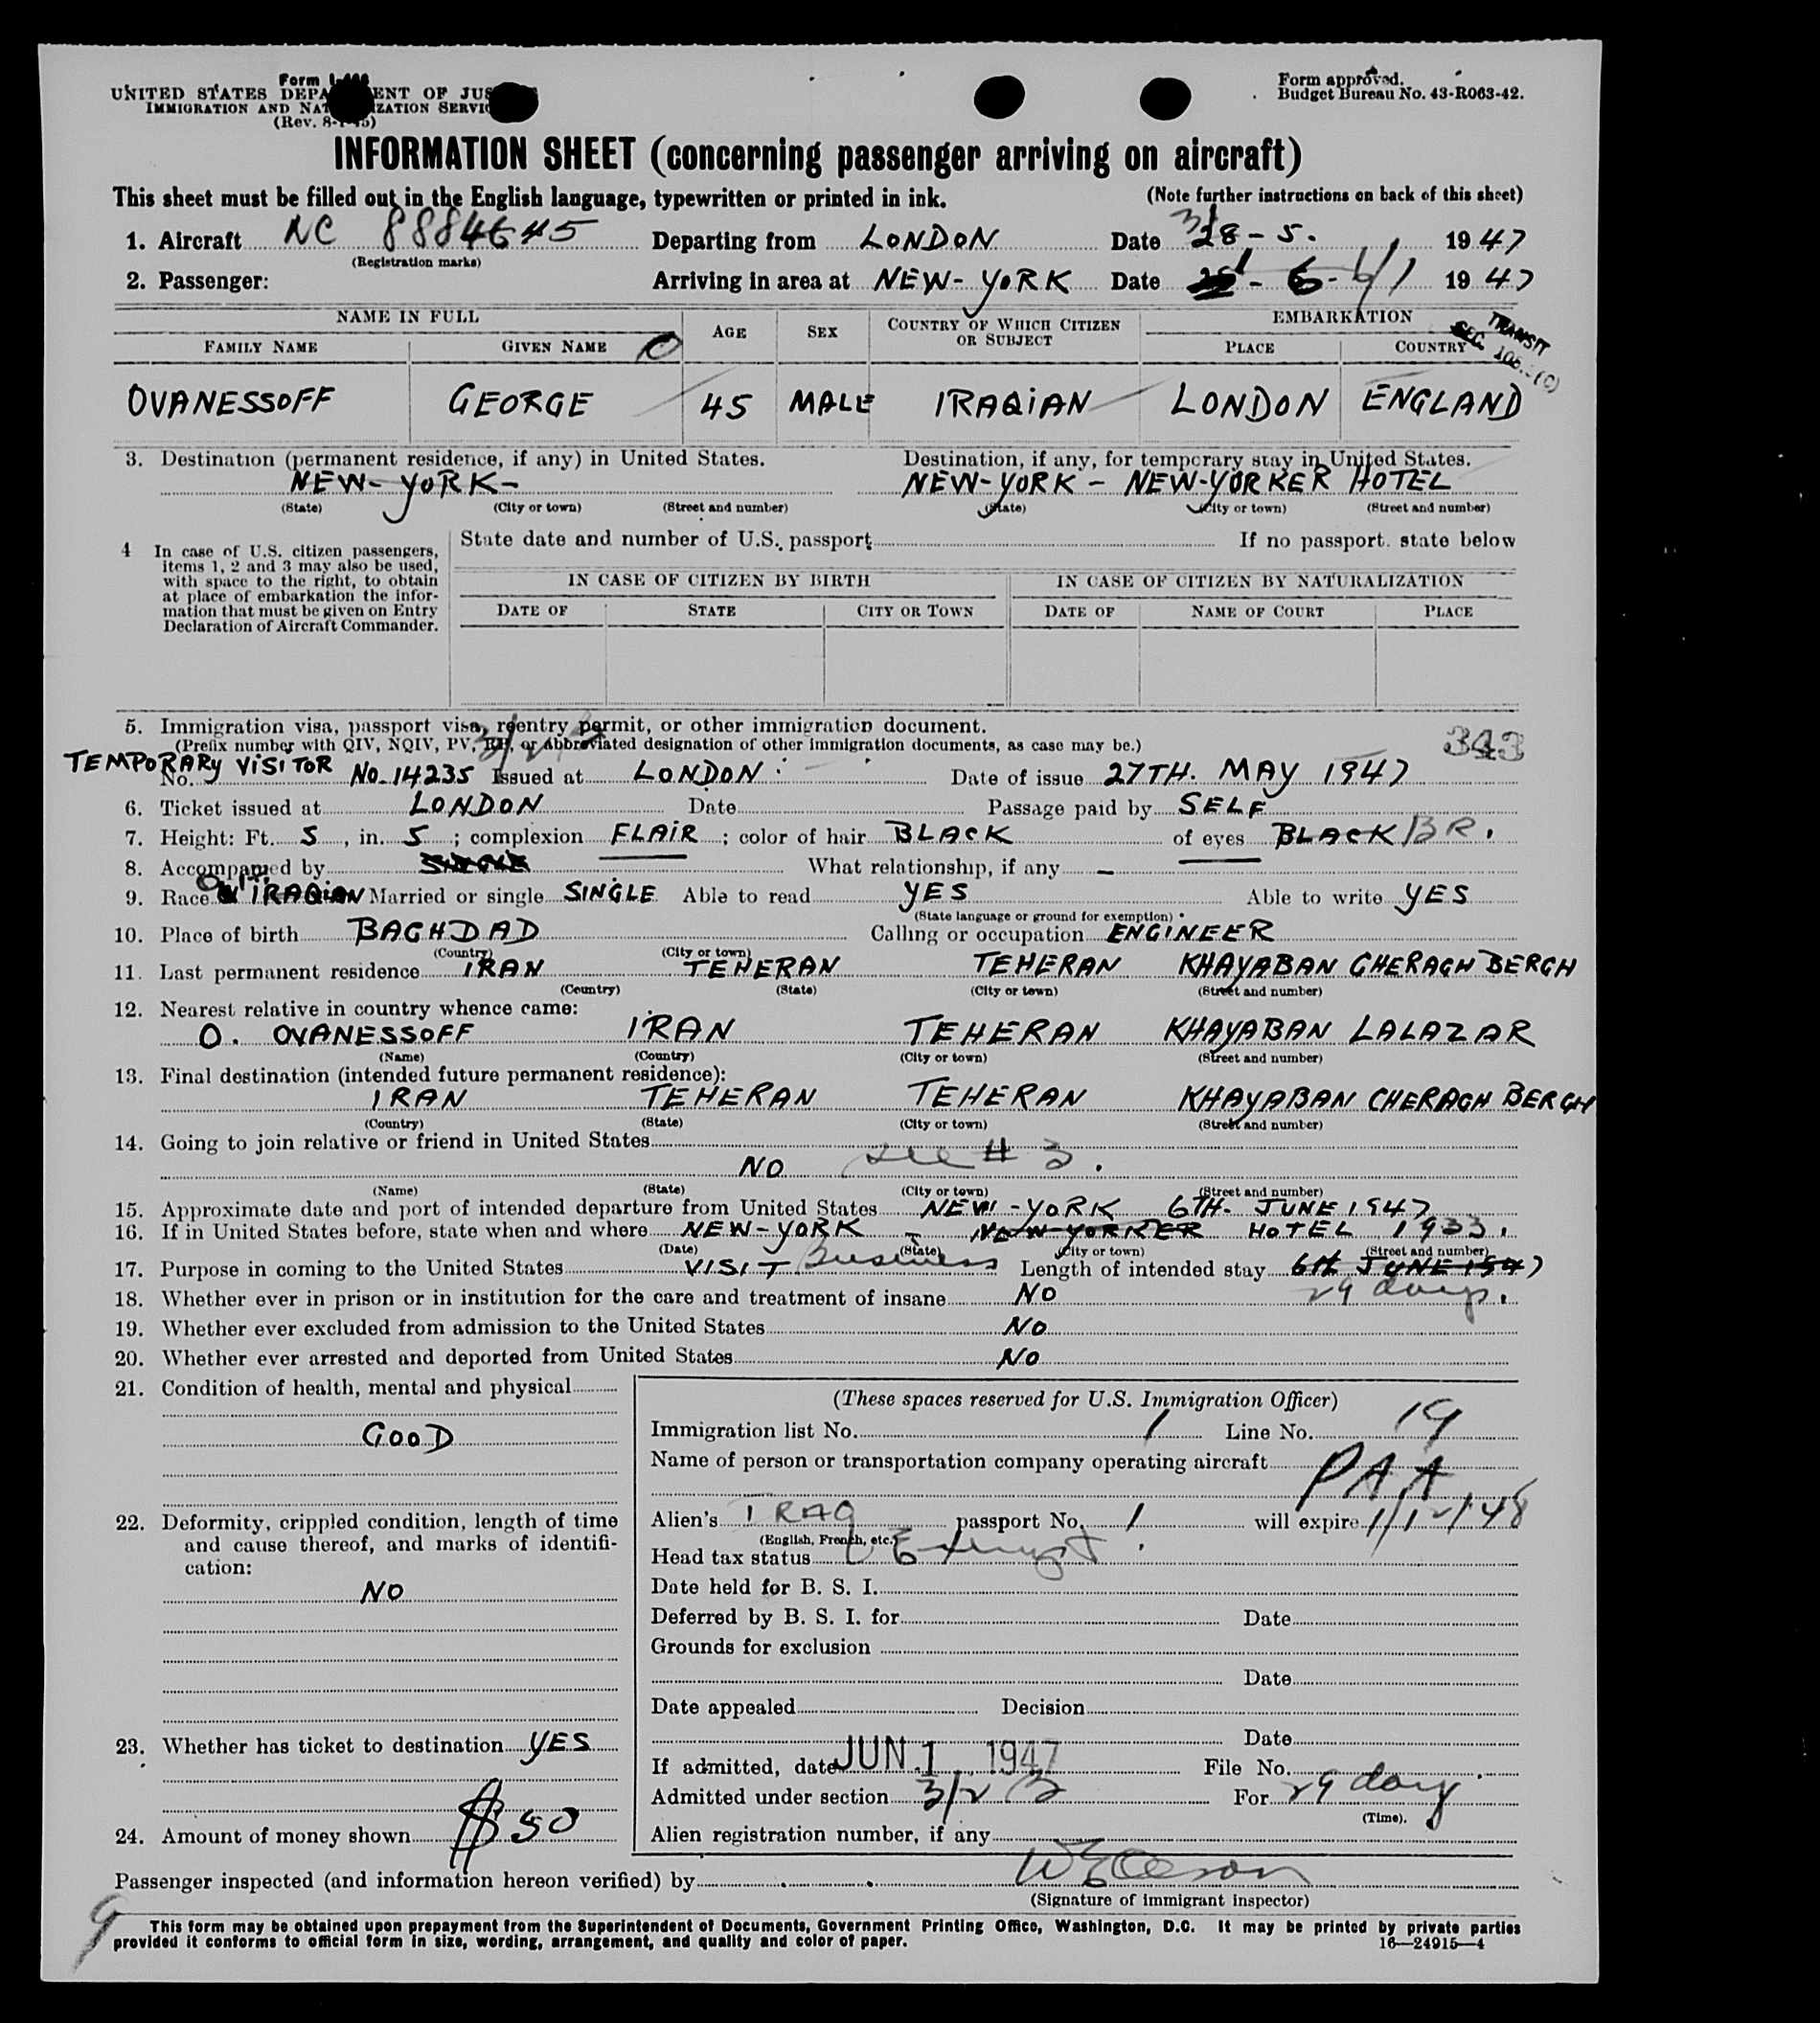 Form
UNITED STATES DEPA ENT OF JUS
IMMIGRATION AND NAT IZATION SERVIC
(Rev. 8-1-45)
Form approved.
Budget Bureau No. 43-R063-42.
INFORMATION SHEET (concerning passenger arriving on aircraft)
This sheet must be filled out in the English language, typewritten or printed in ink. (Note further instructions on back of this sheet)
1. Aircraft NC Departing from LONDON Date 28 - 5. 1947
(Registration marks)
2. Passenger: Arriving in area at NEW-YORK Date 6/1 1947
NAME IN FULL AGE SEX COUNTRY OF WHICH CITIZEN OR SUBJECT EMBARKATION
FAMILY NAME GIVEN NAME PLACE COUNTRY
TRANSIT
SEC.
OVANESSOFF GEORGE 45 MALE IRAQIAN LONDON ENGLAND
3. Destination (permanent residence, if any) in United States. Destination, if any, for temporary stay in United States.
NEW-YORK- NEW-YORK - NEW-YORKER HOTEL
(State) (City or town) (Street and number) (State) (City or town) (Street and number)
4 In case of U.S. citizen passengers, items 1, 2 and 3 may also be used, with space to the right, to obtain at place of embarkation the information that must be given on Entry Declaration of Aircraft Commander.
State date and number of U.S. passport If no passport. state below
IN CASE OF CITIZEN BY BIRTH IN CASE OF CITIZEN BY NATURALIZATION
DATE OF STATE CITY OR TOWN DATE OF NAME OF COURT PLACE
5. Immigration visa, passport visa, reentry permit, or other immigration document.
(Prefix number with QIV, NQIV, PV, RP, or abbreviated designation of other immigration documents, as case may be.) 343
TEMPORARY VISITOR No. No. 14235 Issued at LONDON Date of issue 27TH. MAY 1947
6. Ticket issued at LONDON Date Passage paid by SELF
7. Height: Ft. 5, in. 5; complexion FLAIR; color of hair BLACK of eyes BLACK BR.
8. Accompanied by What relationship, if any -
9. Race IRAQIAN Married or single SINGLE Able to read YES Able to write YES
(State language or ground for exemption)
10. Place of birth BAGHDAD Calling or occupation ENGINEER
(Country) (City or town)
11. Last permanent residence IRAN TEHERAN TEHERAN KHAYABAN CHERAGH BERGH
(Country) (State) (City or town) (Street and number)
12. Nearest relative in country whence came:
O. OVANESSOFF IRAN TEHERAN KHAYABAN LALAZAR
(Name) (Country) (City or town) (Street and number)
13. Final destination (intended future permanent residence):
IRAN TEHERAN TEHERAN KHAYABAN CHERAGH BERGH
(Country) (State) (City or town) (Street and number)
14. Going to join relative or friend in United States
NO see # 3.
(Name) (State) (City or town) (Street and number)
15. Approximate date and port of intended departure from United States NEW-YORK 6TH. JUNE 1947
16. If in United States before, state when and where NEW-YORK NEW-YORKER HOTEL 1933.
(Date) (State) (City or town) (Street and number)
17. Purpose in coming to the United States VISIT Business Length of intended stay 6th JUNE 1947
18. Whether ever in prison or in institution for the care and treatment of insane NO 29 days.
19. Whether ever excluded from admission to the United States NO
20. Whether ever arrested and deported from United States NO
21. Condition of health, mental and physical
GOOD
22. Deformity, crippled condition, length of time and cause thereof, and marks of identification:
NO
23. Whether has ticket to destination YES
24. Amount of money shown $50
(These spaces reserved for U.S. Immigration Officer)
Immigration list No. 1 Line No. 19
Name of person or transportation company operating aircraft PAA
Alien's IRAQ passport No. 1 will expire 1/12/48
(English, French, etc.)
Head tax status Exempt
Date held for B. S. I.
Deferred by B. S. I. for Date
Grounds for exclusion
Date
Date appealed Decision
Date
If admitted, date JUN 1 1947 File No.
Admitted under section 3/2 B For 29 days
(Time).
Alien registration number, if any
Passenger inspected (and information hereon verified) by
(Signature of immigrant inspector)
9
This form may be obtained upon prepayment from the Superintendent of Documents, Government Printing Office, Washington, D.C. It may be printed by private parties
provided it conforms to official form in size, wording, arrangement, and quality and color of paper. 16—24915—4